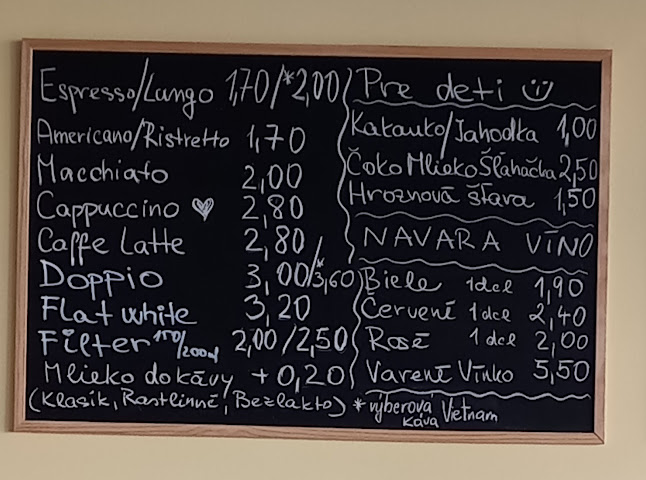 Espresso/Lungo 1,70/*2,00
Americano/Ristretto 1,70
Macchiato 2,00
Cappuccino ♥ 2,80
Caffe Latte 2,80
Doppio 3,00/*3,60
Flat white 3,20
Filter 150/200ml 2,00/2,50
Mlieko do kávy +0,20
(Klasik, Rastlinné, Bezlakto)
Pre deti
Kakauko/Jahodka 1,00
Čoko Mlieko Šľahačka 2,50
Hroznová šťava 1,50
NAVARA VÍNO
Biele 1dcl 1,90
Červené 1dcl 2,40
Rosé 1dcl 2,00
Varené Vínko 5,50
*výberová káva Vietnam